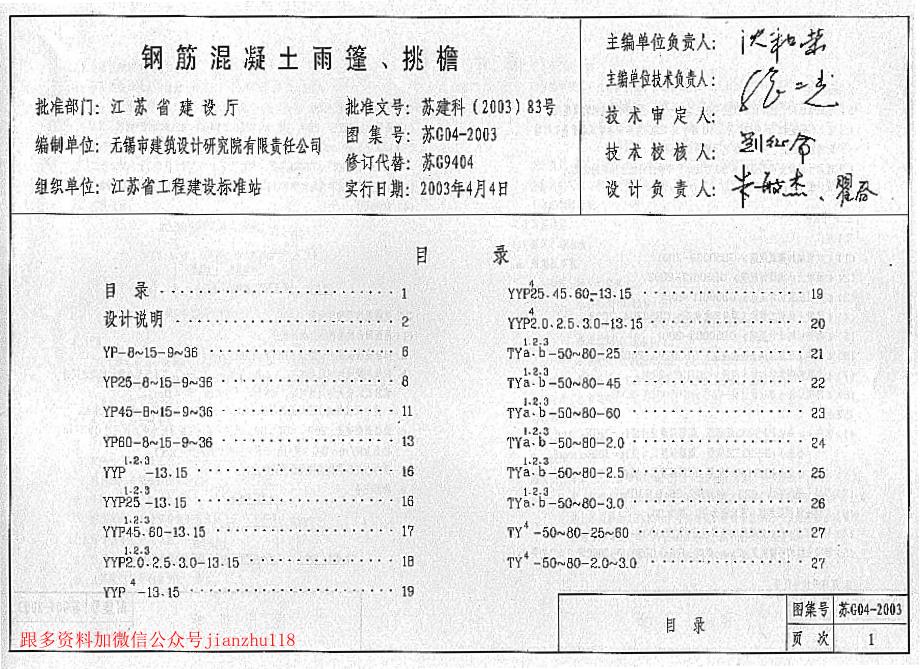 钢筋混凝土雨篷、挑檐
批准部门：江苏省建设厅
批准文号：苏建科（2003）83号
编制单位：无锡市建筑设计研究院有限责任公司
图集号：苏G04-2003
修订代替：苏G9404
组织单位：江苏省工程建设标准站
实行日期：2003年4月4日
主编单位负责人：
主编单位技术负责人：
技术审定人：
技术校核人：
设计负责人：
目 录
目录 1
设计说明 2
YP-8~15-9~36 6
YP25-8~15-9~36 8
YP45-8~15-9~36 11
YP60-8~15-9~36 13
YYP1.2.3-13.15 16
YYP25 1.2.3-13.15 16
YYP45.60 1.2.3-13.15 17
YYP2.0.2.5.3.0 1.2.3-13.15 18
YYP4-13.15 19
YYP25.45.60 4-13.15 19
YYP2.0.2.5.3.0 4-13.15 20
TYa.b 1.2.3-50~80-25 21
TYa.b 1.2.3-50~80-45 22
TYa.b 1.2.3-50~80-60 23
TYa.b 1.2.3-50~80-2.0 24
TYa.b 1.2.3-50~80-2.5 25
TYa.b 1.2.3-50~80-3.0 26
TY4-50~80-25~60 27
TY4-50~80-2.0~3.0 27
目录
图集号 苏G04-2003
页次 1
跟多资料加微信公众号jianzhu118